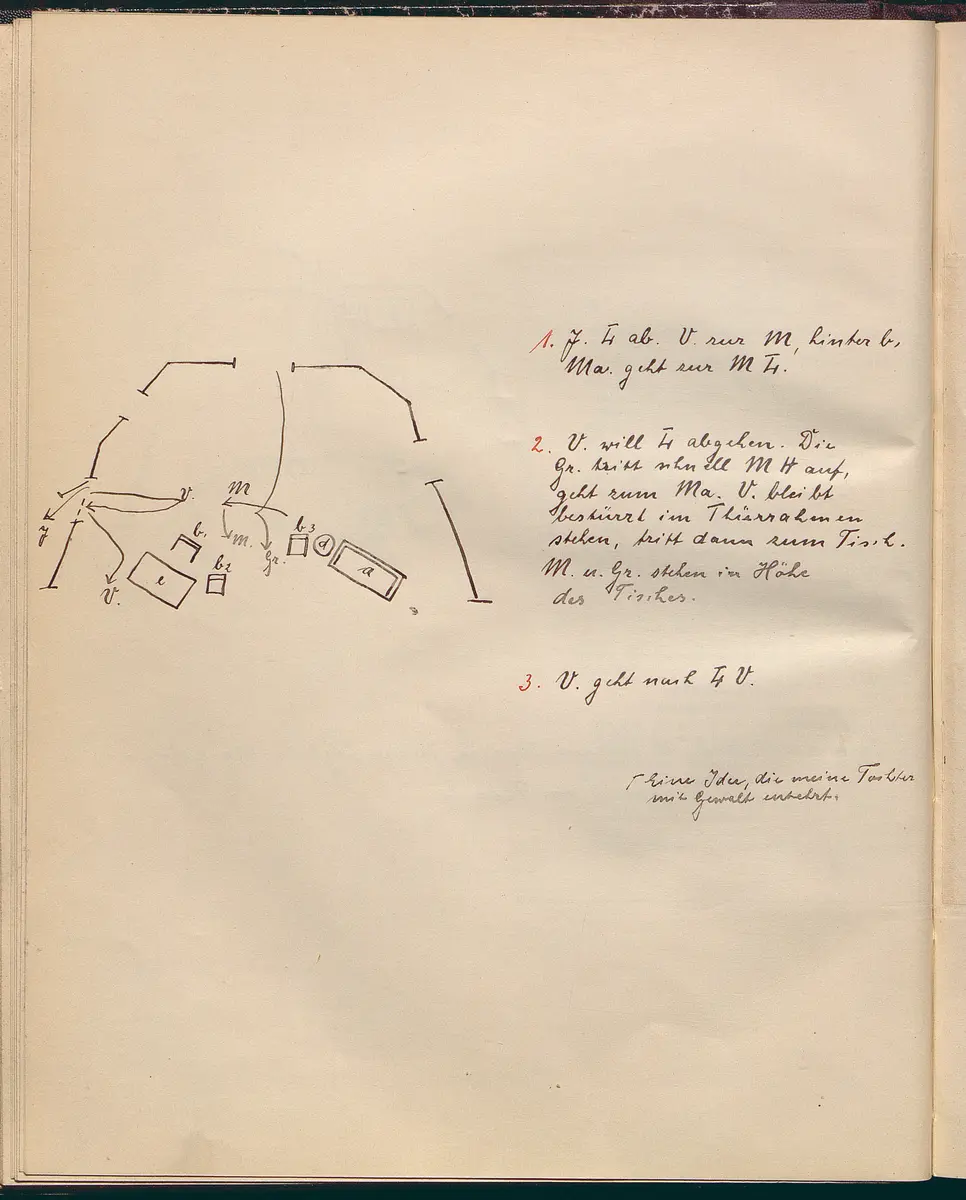 1. J. L ab. V. zur M, hinter b,
Ma. geht zur M L.
2. V. will L abgehen. Die
Gr. tritt schnell M H auf,
geht zum Ma. V. bleibt
bestürzt im Thürrahmen
stehen, tritt dann zum Tisch.
M. u. Gr. stehen in Höhe
des Tisches.
3. V. geht nach L V.
Eine Idee, die meine Tochter
mit Gewalt entehrt.
J
V.
M
V.
b1
e
b2
m.
Gr.
b3
d
a